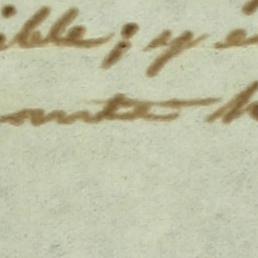 ible; y e
ante h